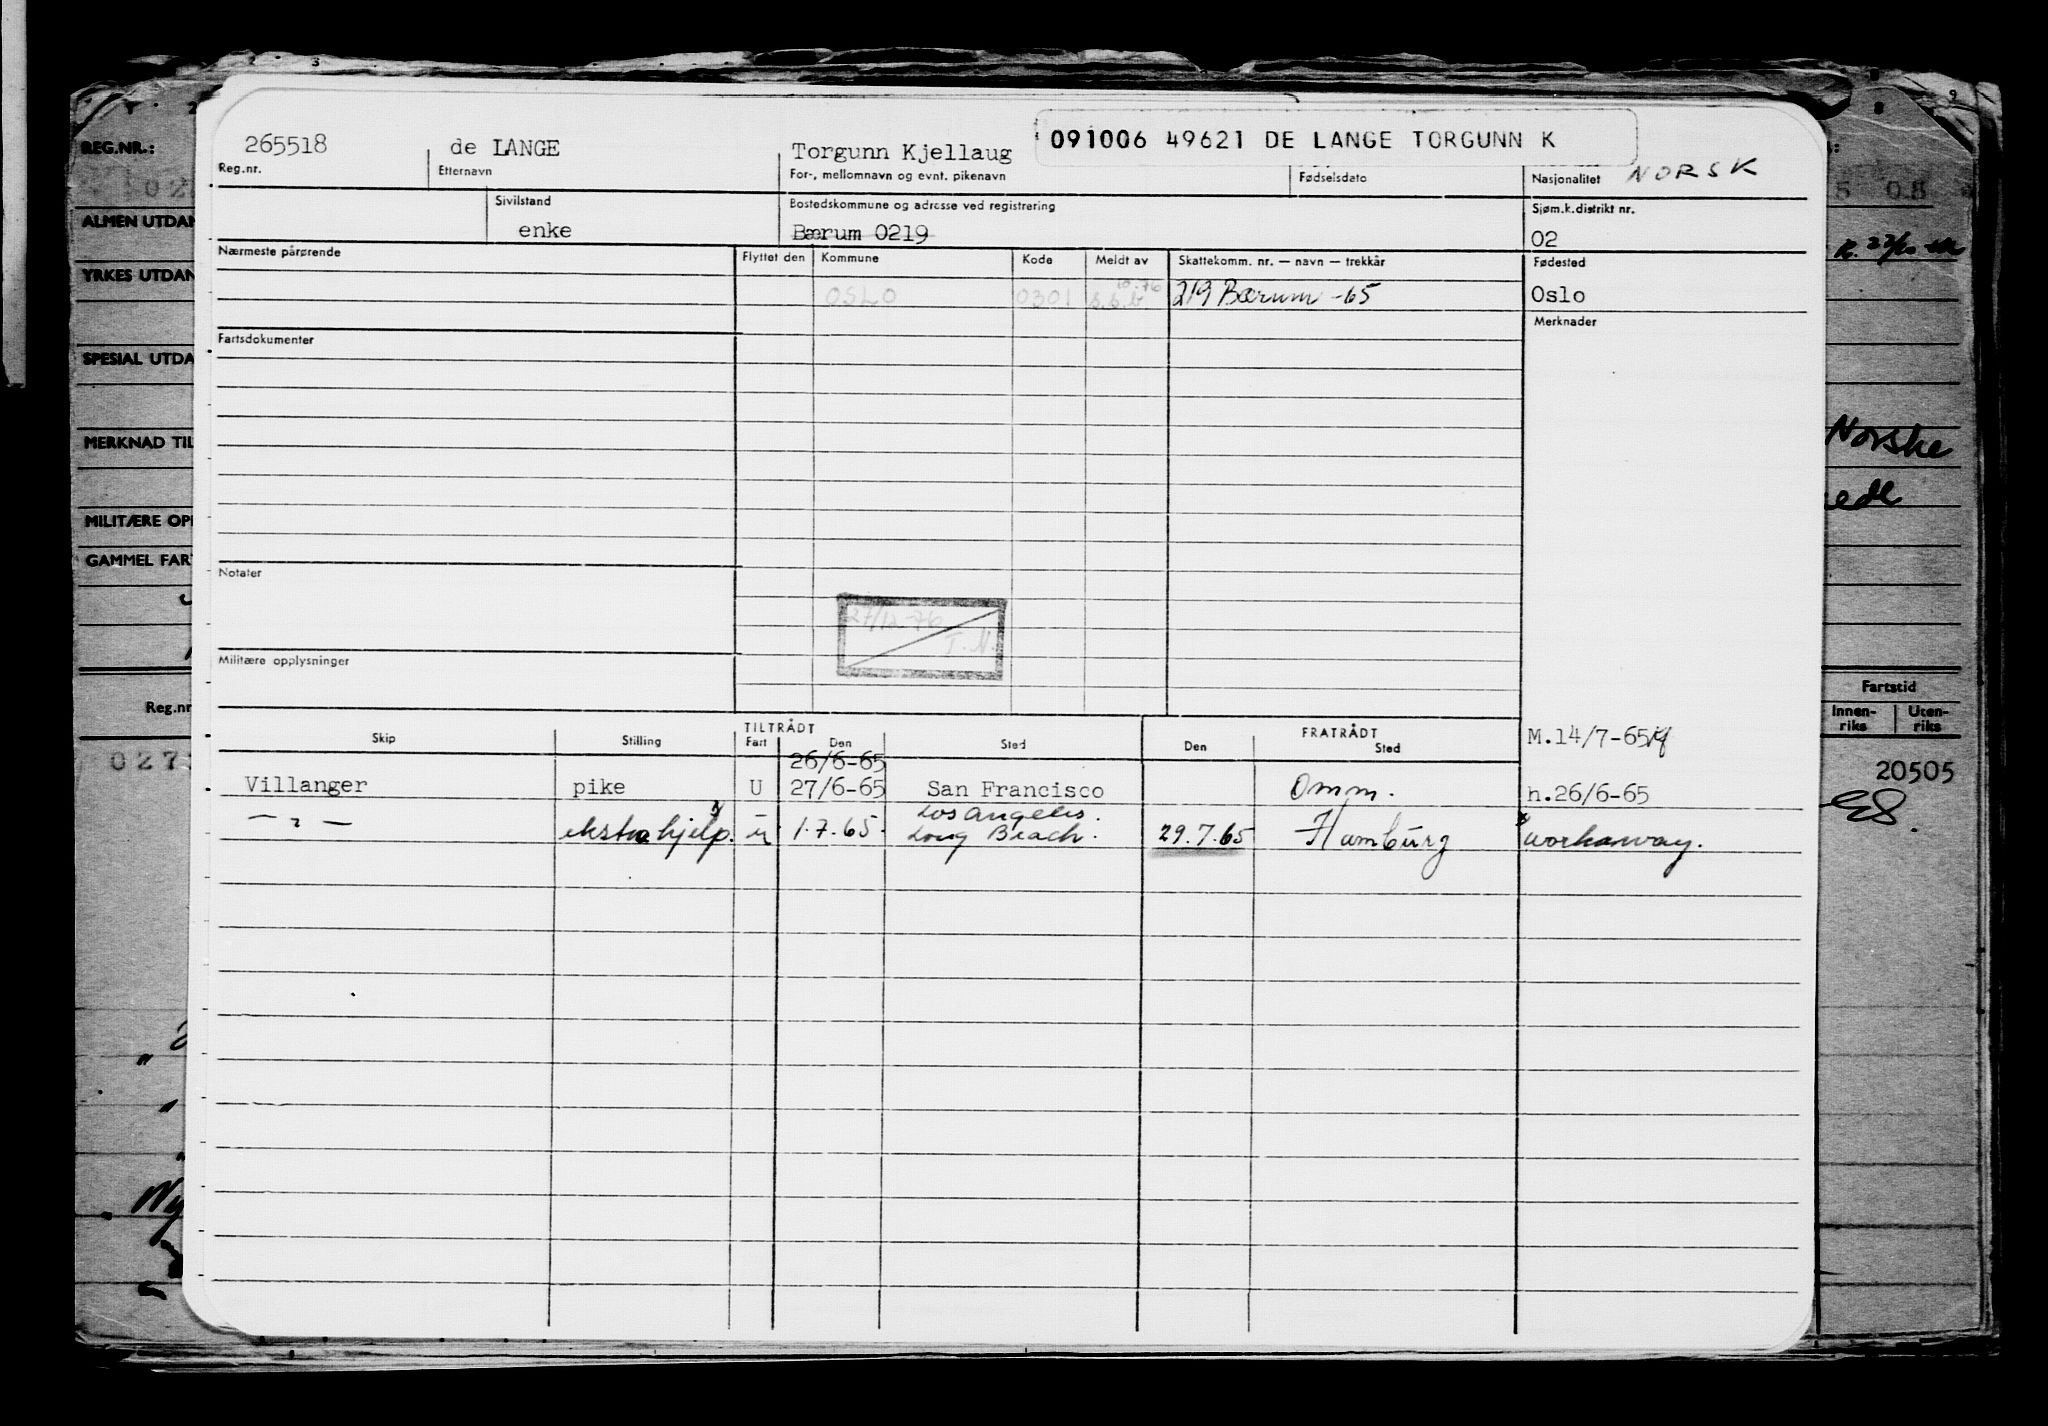 265518 de LANGE Torgunn Kjellaug 091006 49621 DE LANGE TORGUNN K
Reg.nr. Etternavn For-, mellomnavn og evnt. pikenavn Fødselsdato Nasjonalitet NORSK
Sivilstand Bostedskommune og adresse ved registrering Sjøm.k.distrikt nr.
enke Bærum 0219 02
Nærmeste pårørende Flyttet den Kommune Kode Meldt av Skattekomm. nr. — navn — trekkår Fødested
OSLO 0301 S.b.b 10.76 219 Bærum -65 Oslo
Merknader
Fartsdokumenter
Notater
27/12-76
T.N.
Militære opplysninger
TILTRÅDT FRATRÅDT
Skip Stilling Fart Den Sted Den Sted
M.14/7-65
26/6-65
Villanger pike U 27/6-65 San Francisco Omm. h.26/6-65
Los Angeles.
— " — ekstrahjelp. u 1.7.65. Long Beach. 29.7.65 Hamburg workaway.
REG.NR.:
ALMEN UTDAN
YRKES UTDAN
SPESIAL UTDA
MERKNAD TIL
MILITÆRE OPP
GAMMEL FAR
Reg.nr
027
5 08
Norske
Fartstid
Innen-riks Uten-riks
20505
Ny